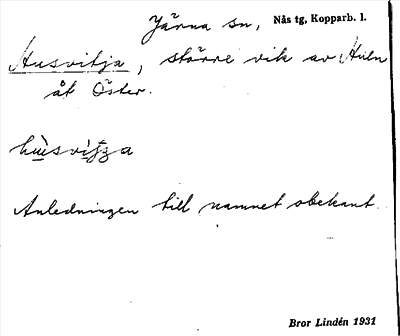 Järna sn, Nås tg, Kopparb. l.
Husvikja, större vik av Huln
åt Öster.
Anledningen till namnet obekant.
Bror Lindén 1931